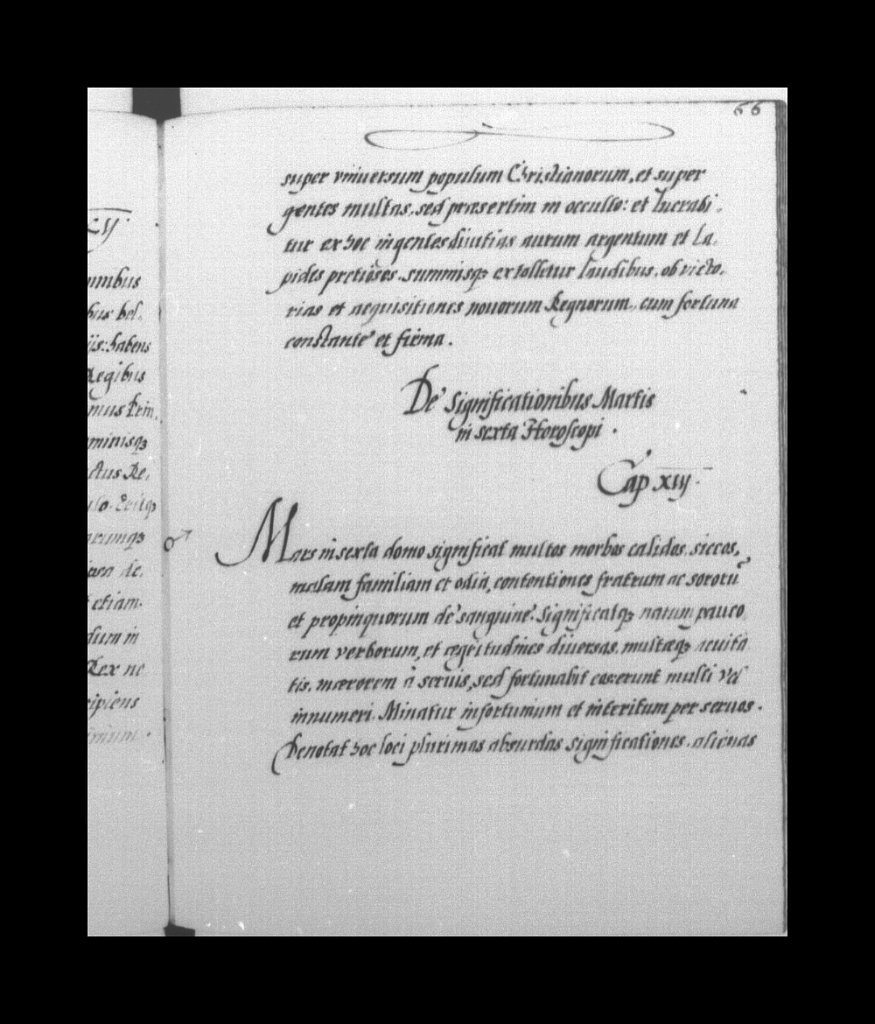 66
super vniuersum populum Christianorum, et super
gentes multas, sed praesertim in occulto: et lucrabi,
tur ex hoc ingentes diuitias aurum argentum et La,
pides pretiosos, summisq₃ extolletur laudibus, ob victo,
rias et aequisitiones nouorum Regnorum, cum fortuna
constante et firma.
De Significationibus Martis
in sexta Horoscopi.
Cap XIIJ.
♂
Mars in sexta domo significat multos morbos calidos, siccos,
malam familiam et odia, contentiones fratrum ac sororū
et propinquorum de sanguine: Significatq₃ natum pauco
rum verborum, et aegritudines diuersas, multaeq₃
tis, maerorem à seruis, sed fortunabit erunt multi Vel
innumeri. Minatur infortunium et interitum per seruos.
Denotat hoc loci plurimas absurdas significationes, alienas
XIJ.
mnibus
bus bel,
iis: habens
Regibus
mus Prin,
minisq₃
ctus Re,
etiam
dum in
Rex ne
cipiens